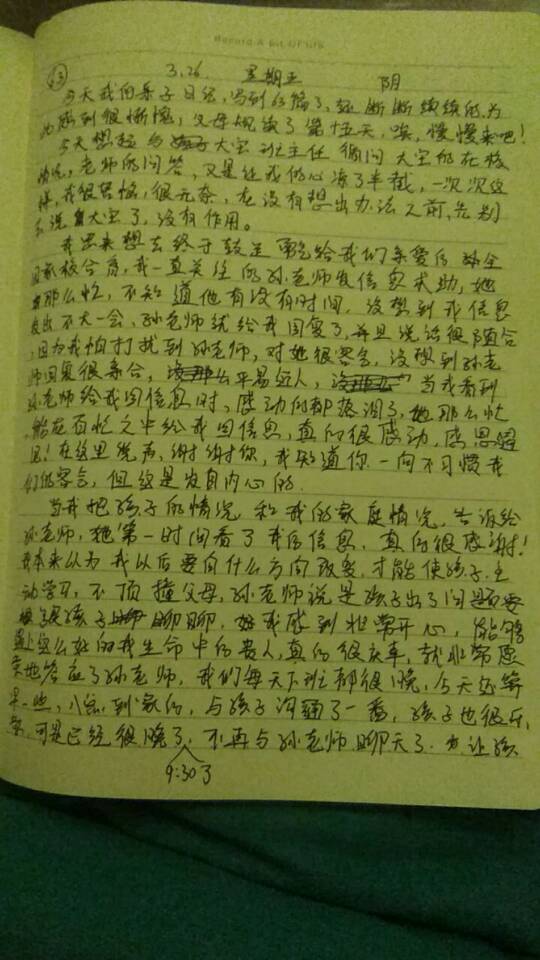 Record A Bit Of Life
63
3.26 星期五 阴
今天我的亲子日记,写到63篇了,还断断续续的,为
此感到很惭愧,父母规读了第十五天,唉,慢慢来吧!
今天想起与大宝班主任询问大宝的在校
情况,老师的回答,又是让我的心凉了半截,一次次这
样,我很苦恼,很无奈,在没有想出办法之前,先别
说大宝了,没有作用。
我思来想去终于鼓足勇气给我们亲爱的
我一直关注的孙老师发信息求助,她
那么忙,不知道他有没有时间,没想到我信息
发出不大一会,孙老师就给我回复了,并且说话很随合
,因为我怕打扰到孙老师,对她很客气,没想到孙老
师回复很亲合,平易近人,当我看到
孙老师给我回信息时,感动的都落泪了,她那么忙
能在百忙之中给我回信息,真的很感动,感恩遇
见!在这里说声,谢谢你,我知道你一向不习惯我
们的客言,但这是发自内心的。
当我把孩子的情况和我的家庭情况,告诉给
孙老师,她第一时间看了我的信息,真的很感谢!
我本来以为我以后要向什么方向改变,才能使孩子主
动学习,不顶撞父母,孙老师说是孩子出了问题要
跟孩子聊聊,我感到非常开心,能够
遇上这么好的我生命中的贵人,真的很庆幸,就非常愿
意地答应了孙老师,我们每天下班都很晚,今天还算
早一些,八点到家的,与孩子沟通了一番,孩子也很乐
意,可是已经很晚了,不再与孙老师聊天了.为让孩
9:30了